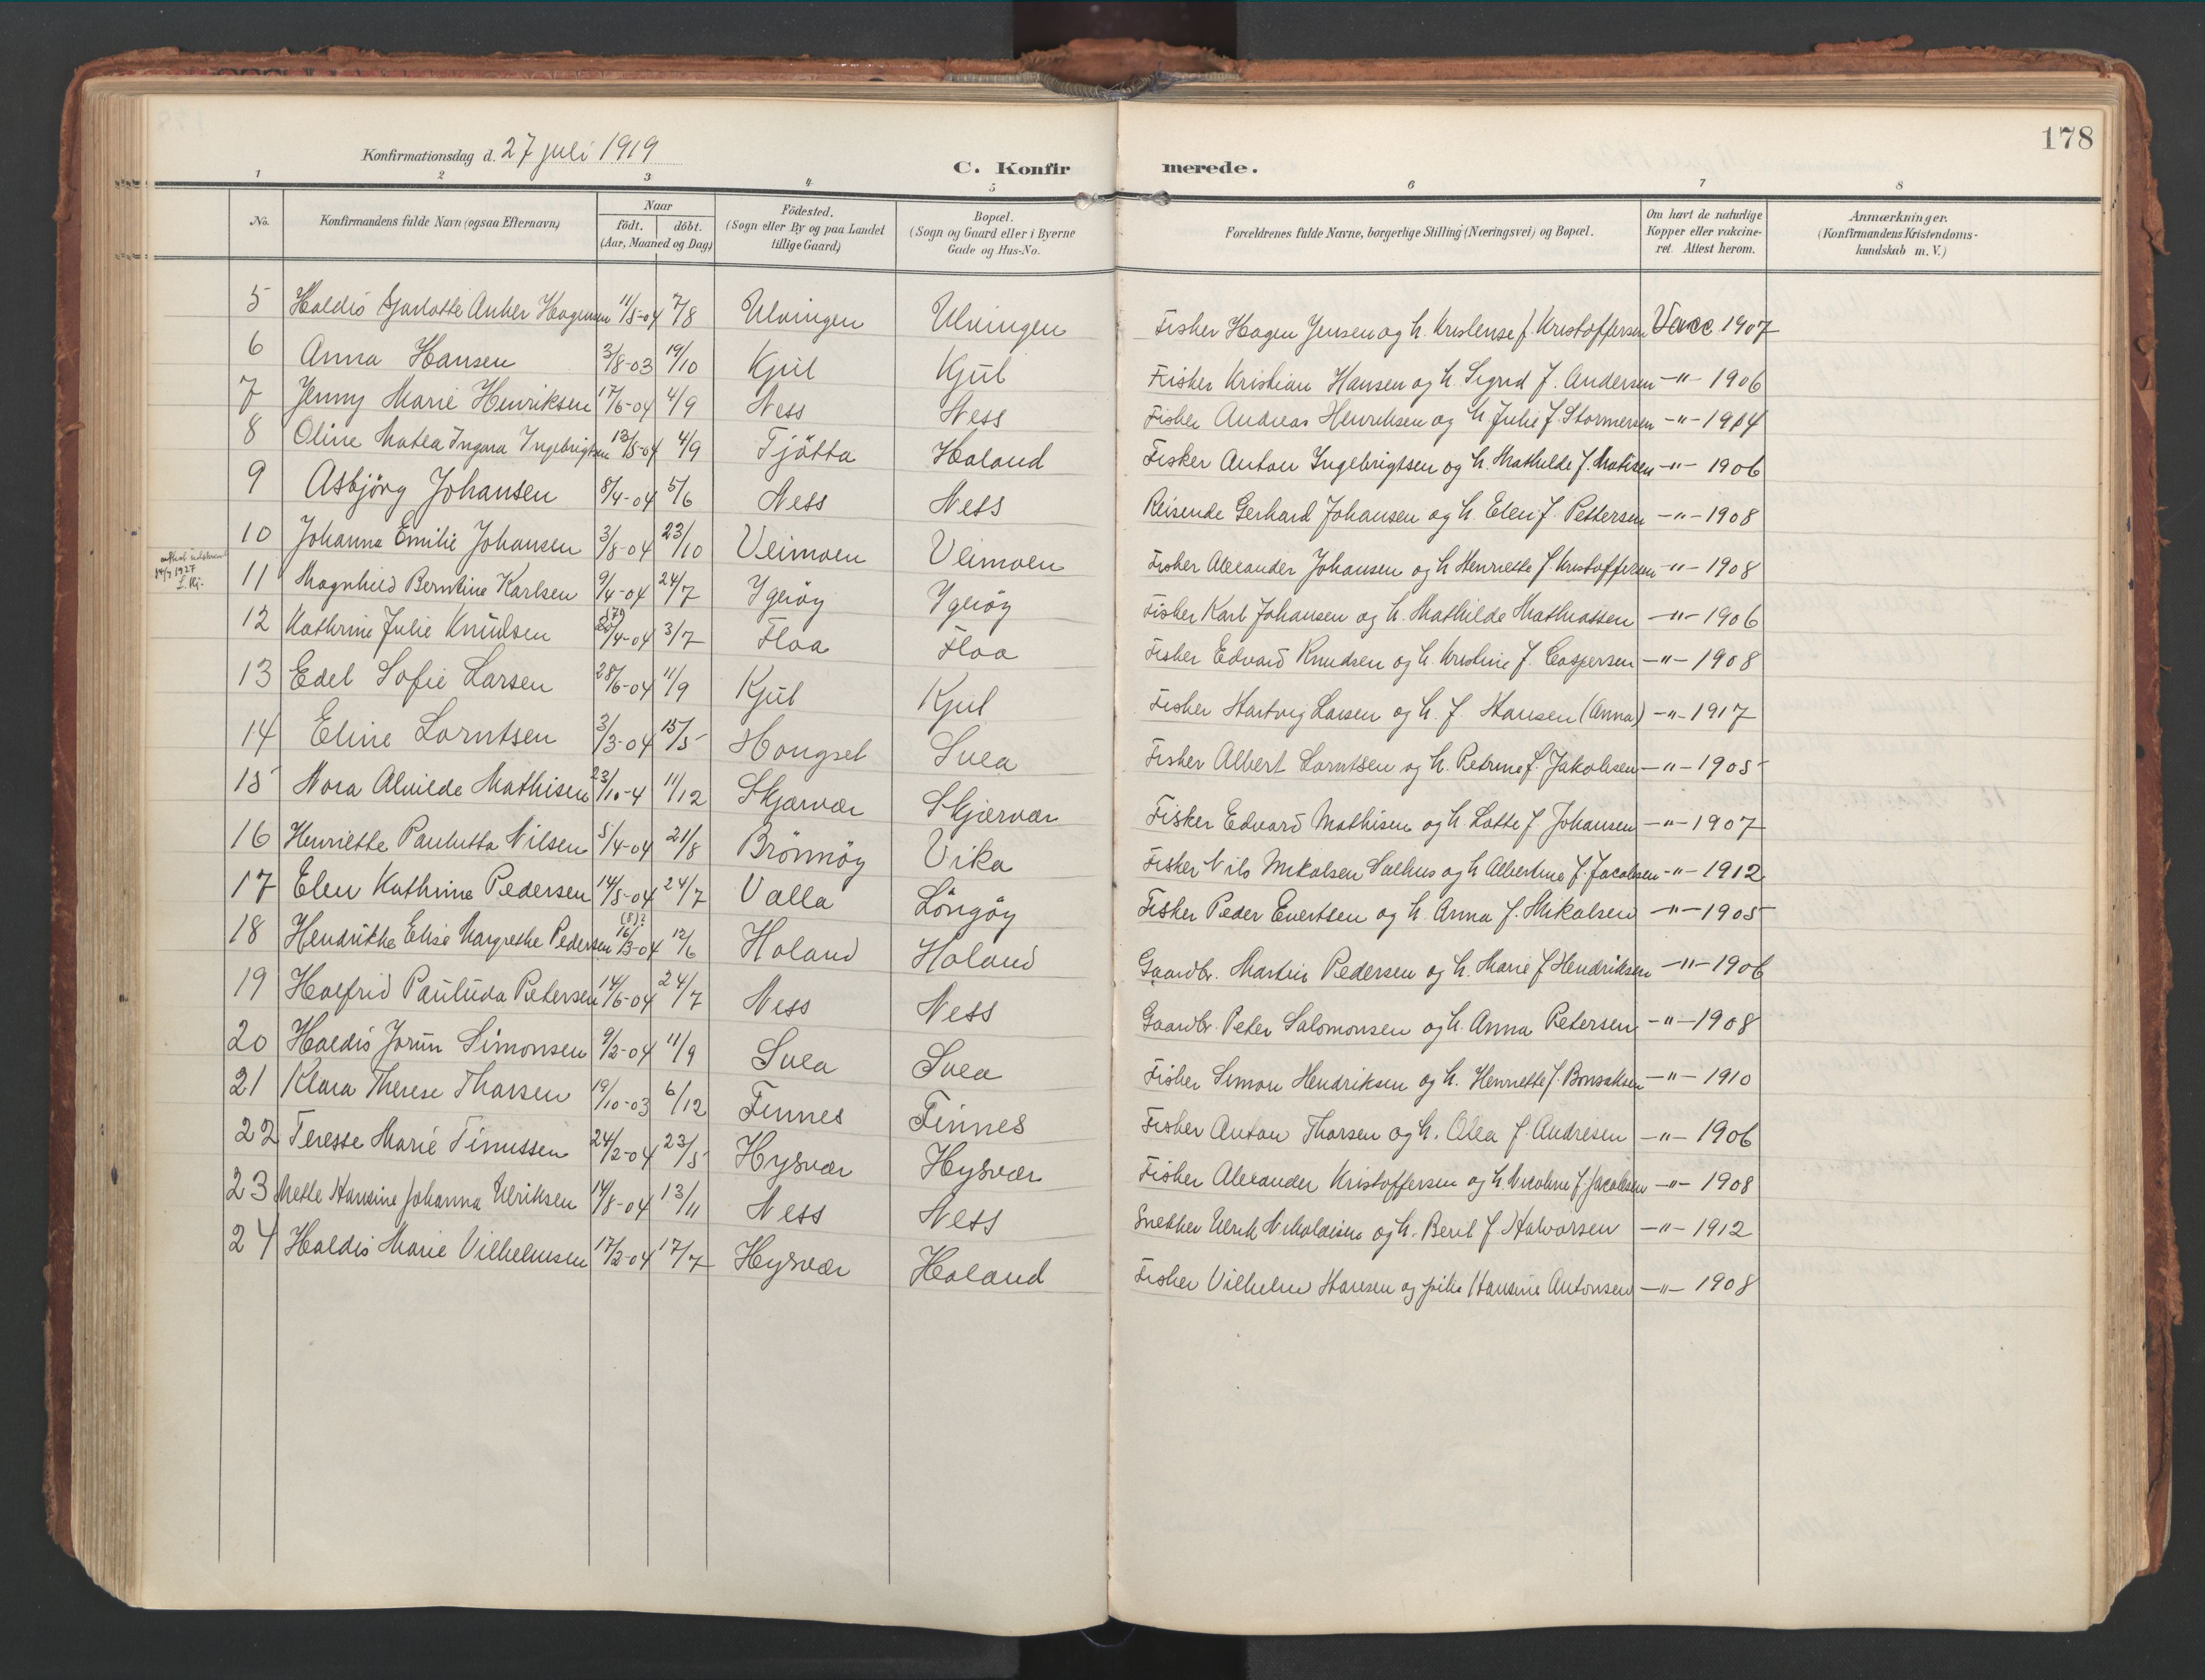 178
Konfirmationsdag d. 27 juli 1919
C. Konfirmerede.
1 2 3 4 5 6 7 8
No.
Konfirmandens fulde Navn (ogsaa Efternavn)
Naar
födt. döbt.
(Aar, Maaned og Dag)
Födested.
(Sogn eller By og paa Landet
tillige Gaard)
Bopæl.
(Sogn og Gaard eller i Byerne
Gade og Hus-No.
Forældrenes fulde Navne, borgerlige Stilling (Næringsvei) og Bopæl.
Om havt de naturlige
Kopper eller vakcine-
ret. Attest herom.
Anmærkninger.
(Konfirmandens Kristendoms-
kundskab m. V.)
5 Haldis Anker Hagensen 11/5-04 7/8 Ulvingen Ulvingen Fisker Hagen Jensen og h. Kristense f. Kristoffersen Vacc 1907
6 Anna Hansen 3/8-03 19/10 Kjul Kjul Fisker Kristian Hansen og h. Sigrid f. Andersen -"- 1906
7 Jenny Marie Henriksen 17/6-04 4/9 Ness Ness Fisker Andreas Henriksen og h. Julie f. Stormersen -"- 1914
8 Oline Matea Ingara Ingebrigtsen 13/5-04 4/9 Tjötta Haland Fisker Anton Ingebrigtsen og h. Mathilde f. Matisen -"- 1906
9 Asbjörg Johansen 8/4-04 5/6 Ness Ness Reisende Gerhard Johansen og h. Elen f. Pettersen -"- 1908
10 Johanna Emilie Johansen 3/8-04 23/10 Vlimoen Vlimoen Fisker Alexander Johansen og h Henriette f Kristoffersen -"- 1908
14/7 1927
11 Magnhild Berntine Karlsen 9/4-04 24/7 Ygeröy Ygeröy Fisker Karl Johansen og h. Mathilde Mathiassen -"- 1906
12 Kathrine Julie Knudsen /4-04 3/7 Floa Floa Fisker Edvard Knudsen og h. Kristine f. Caspersen -"- 1908
13 Edel Sofie Larsen 28/6-04 11/9 Kjul Kjul Fisker Hartvig Larsen og h. f. Hansen (Anna) -"- 1917
14 Eline Lorntsen 3/3-04 15/5 Hongset Svea Fisker Albert Lorntsen og h. Petrine f. Jakobsen -"- 1905
15 Nora Alvilde Mathisen 23/10-4 11/12 Skjærvær Skjærvær Fisker Edvard Mathisen og h. Lotte f Johansen -"- 1907
16 Henriette Paulutta Nilsen 5/4-04 21/8 Brönnöy Vika Fisker Nils Mikalsen Salhus og h Albertine f. Jacobsen -"- 1912
17 Elen Kathrine Pedersen 14/5-04 24/7 Valla Löngöy Fisker Peder Evertsen og h. Anna f. Mikalsen -"- 1905
18 Hendrikke Elise Margrethe Pedersen (8)? 16/3-04 12/6 Haland Haland Gaardbr. Martin Pedersen og h. Marie f Hendriksen -"- 1906
19 Halfrid Pauluda Petersen 14/6-04 24/7 Ness Ness Gaardbr. Peter Salomonsen og h. Anna Petersen -"- 1908
20 Haldis Jorun Simonsen 9/2-04 11/9 Svea Svea Fisker Simon Hendriksen og h. Henriette f. Bonsaksen -"- 1910
21 Klara Therese Tharsen 19/10-03 6/12 Finnes Finnes Fisker Anton Thorsen og h. Olea f. Andresen -"- 1906
22 Teresse Marie Tinussen 24/2-04 23/5 Hysvær Hysvær Fisker Alexander Kristoffersen og h. Nicoline f. Jacobsen -"- 1908
23 Mette Hansine Johanna Ulriksen 14/8-04 13/11 Ness Ness Snekker Ulrik Nikolaisen og h. Beret f. Halvorsen -"- 1912
24 Haldis Marie Vilhelmsen 17/2-04 17/7 Hysvær Haland Fisker Vilhelm Hansen og pike Hansine Antonsen -"- 1908